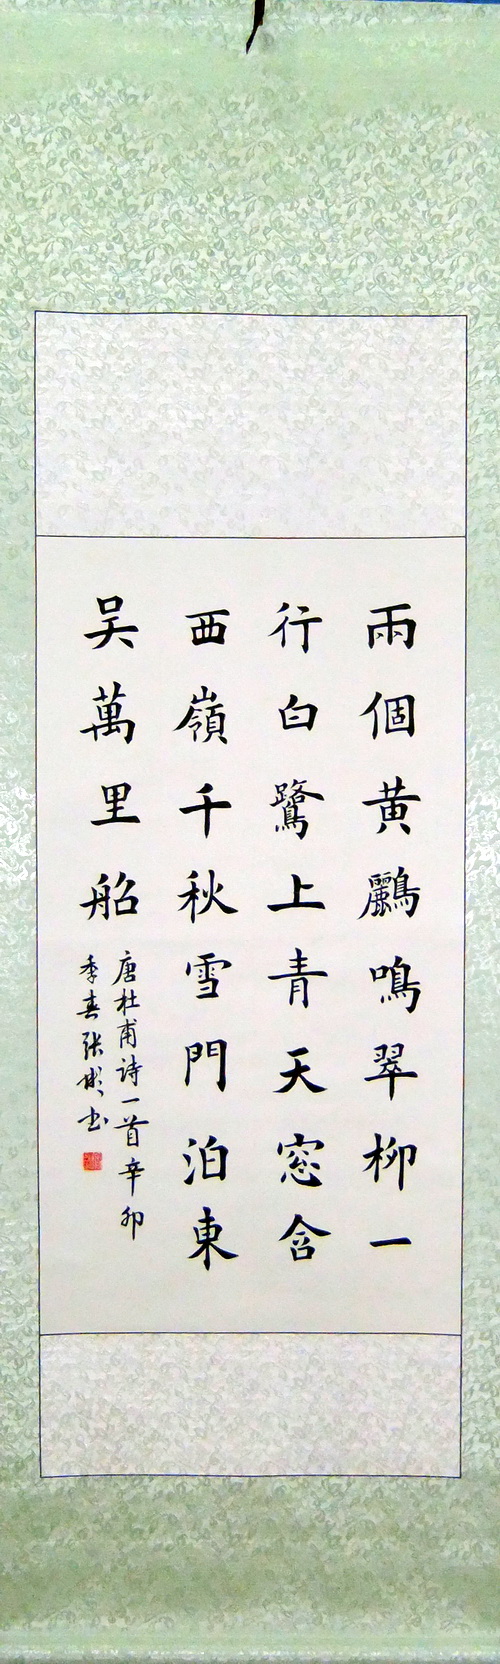 兩個黃鸝鳴翠柳一
行白鷺上青天窓含
西嶺千秋雪門泊東
吴萬里船
唐杜甫诗一首辛卯
季春张彬书